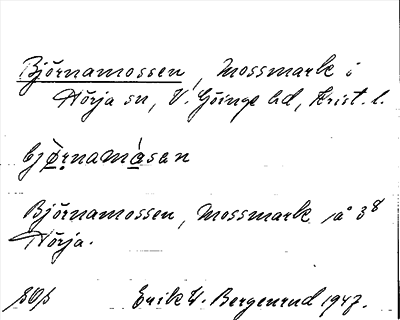 Björnamossen, Mossmark i
Hörja sn, V. Göinge hd, Krist. l.
bjö̀rnamásan
Björnamossen, Mossmark på 3⁸
Hörja.
Erik W. Bergenrud 1947.